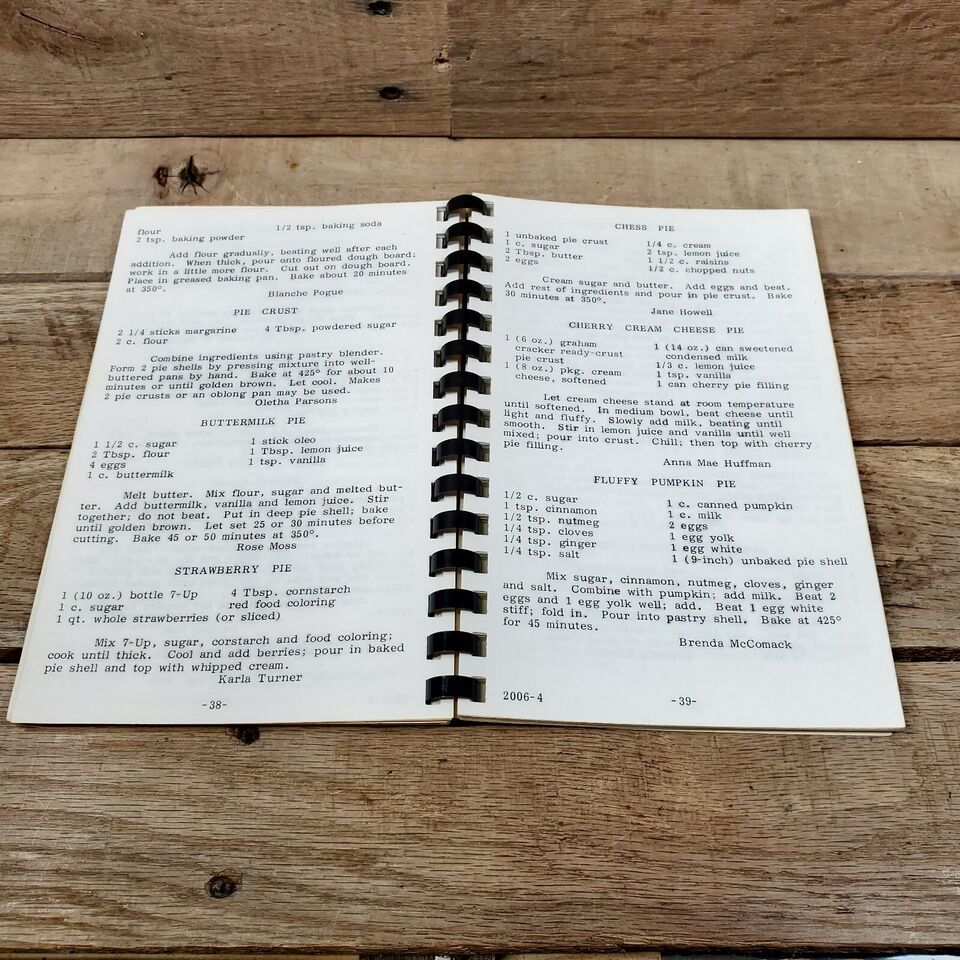 flour 1/2 tsp. baking soda
2 tsp. baking powder
Add flour gradually, beating well after each
addition. When thick, pour onto floured dough board;
work in a little more flour. Cut out on dough board.
Place in greased baking pan. Bake about 20 minutes
at 350°.
Blanche Pogue
PIE CRUST
2 1/4 sticks margarine 4 Tbsp. powdered sugar
2 c. flour
Combine ingredients using pastry blender.
Form 2 pie shells by pressing mixture into well-
buttered pans by hand. Bake at 425° for about 10
minutes or until golden brown. Let cool. Makes
2 pie crusts or an oblong pan may be used.
Oletha Parsons
BUTTERMILK PIE
1 1/2 c. sugar 1 stick oleo
2 Tbsp. flour 1 Tbsp. lemon juice
4 eggs 1 tsp. vanilla
1 c. buttermilk
Melt butter. Mix flour, sugar and melted but-
ter. Add buttermilk, vanilla and lemon juice. Stir
together; do not beat. Put in deep pie shell; bake
until golden brown. Let set 25 or 30 minutes before
cutting. Bake 45 or 50 minutes at 350°.
Rose Moss
STRAWBERRY PIE
1 (10 oz.) bottle 7-Up 4 Tbsp. cornstarch
1 c. sugar red food coloring
1 qt. whole strawberries (or sliced)
Mix 7-Up, sugar, corstarch and food coloring;
cook until thick. Cool and add berries; pour in baked
pie shell and top with whipped cream.
Karla Turner
-38-
CHESS PIE
1 unbaked pie crust 1/4 c. cream
1 c. sugar 2 tsp. lemon juice
2 Tbsp. butter 1 1/2 c. raisins
2 eggs 1/2 c. chopped nuts
Cream sugar and butter. Add eggs and beat.
Add rest of ingredients and pour in pie crust. Bake
30 minutes at 350°.
Jane Howell
CHERRY CREAM CHEESE PIE
1 (6 oz.) graham 1 (14 oz.) can sweetened
cracker ready-crust condensed milk
pie crust 1/3 c. lemon juice
1 (8 oz.) pkg. cream 1 tsp. vanilla
cheese, softened 1 can cherry pie filling
Let cream cheese stand at room temperature
until softened. In medium bowl, beat cheese until
light and fluffy. Slowly add milk, beating until
smooth. Stir in lemon juice and vanilla until well
mixed; pour into crust. Chill; then top with cherry
pie filling.
Anna Mae Huffman
FLUFFY PUMPKIN PIE
1/2 c. sugar 1 c. canned pumpkin
1 tsp. cinnamon 1 c. milk
1/2 tsp. nutmeg 2 eggs
1/4 tsp. cloves 1 egg yolk
1/4 tsp. ginger 1 egg white
1/4 tsp. salt 1 (9-inch) unbaked pie shell
Mix sugar, cinnamon, nutmeg, cloves, ginger
and salt. Combine with pumpkin; add milk. Beat 2
eggs and 1 egg yolk well; add. Beat 1 egg white
stiff; fold in. Pour into pastry shell. Bake at 425°
for 45 minutes.
Brenda McComack
2006-4 -39-